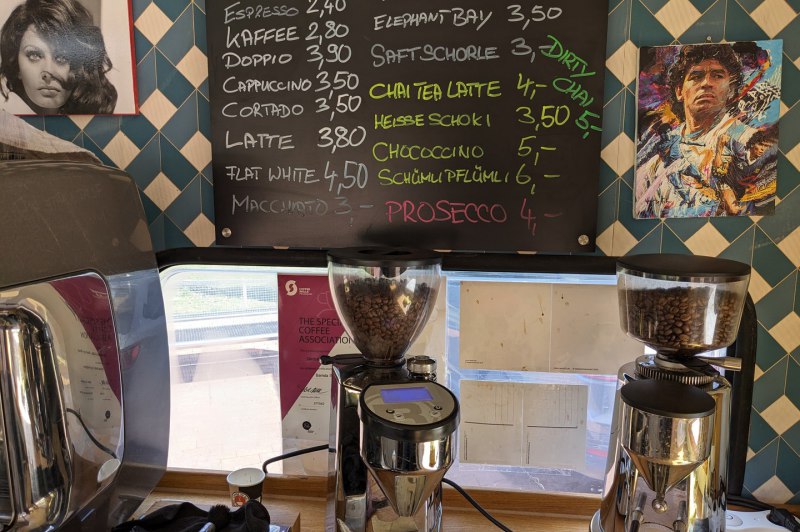 ESPRESSO 2,40
KAFFEE 2,80
DOPPIO 3,90
CAPPUCCINO 3,50
CORTADO 3,50
LATTE 3,80
FLAT WHITE 4,50
MACCHIATO 3,-
ELEPHANT BAY 3,50
SAFTSCHORLE 3,-
CHAI TEA LATTE 4,-
DIRTY CHAI 5,-
HEISSE SCHOKI 3,50
CHOCOCCINO 5,-
SCHÜMLI PFLÜMLI 6,-
PROSECCO 4,-
THE SPECI
COFFEE
ASSOCIATION